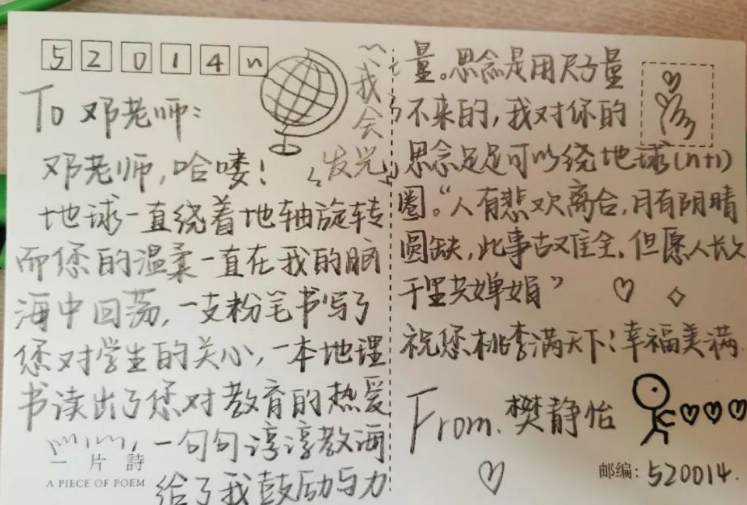 52014n
To 邓老师:
邓老师,哈喽!
地球一直绕着地轴旋转
而您的温柔一直在我的脑
海中回荡,一支粉笔书写了
您对学生的关心,一本地理
书读出了您对教育的热爱
,一句句谆谆教诲
给了我鼓励与力
一片詩
A PIECE OF POEM
我会
发光
量。思念是用尺子量
不来的,我对你的
思念足足可以绕地球(n+1)
圈。“人有悲欢离合,月有阴晴
圆缺,此事古难全。但愿人长久
千里共婵娟”
祝您桃李满天下!幸福美满
From. 樊静怡
邮编: 520014.